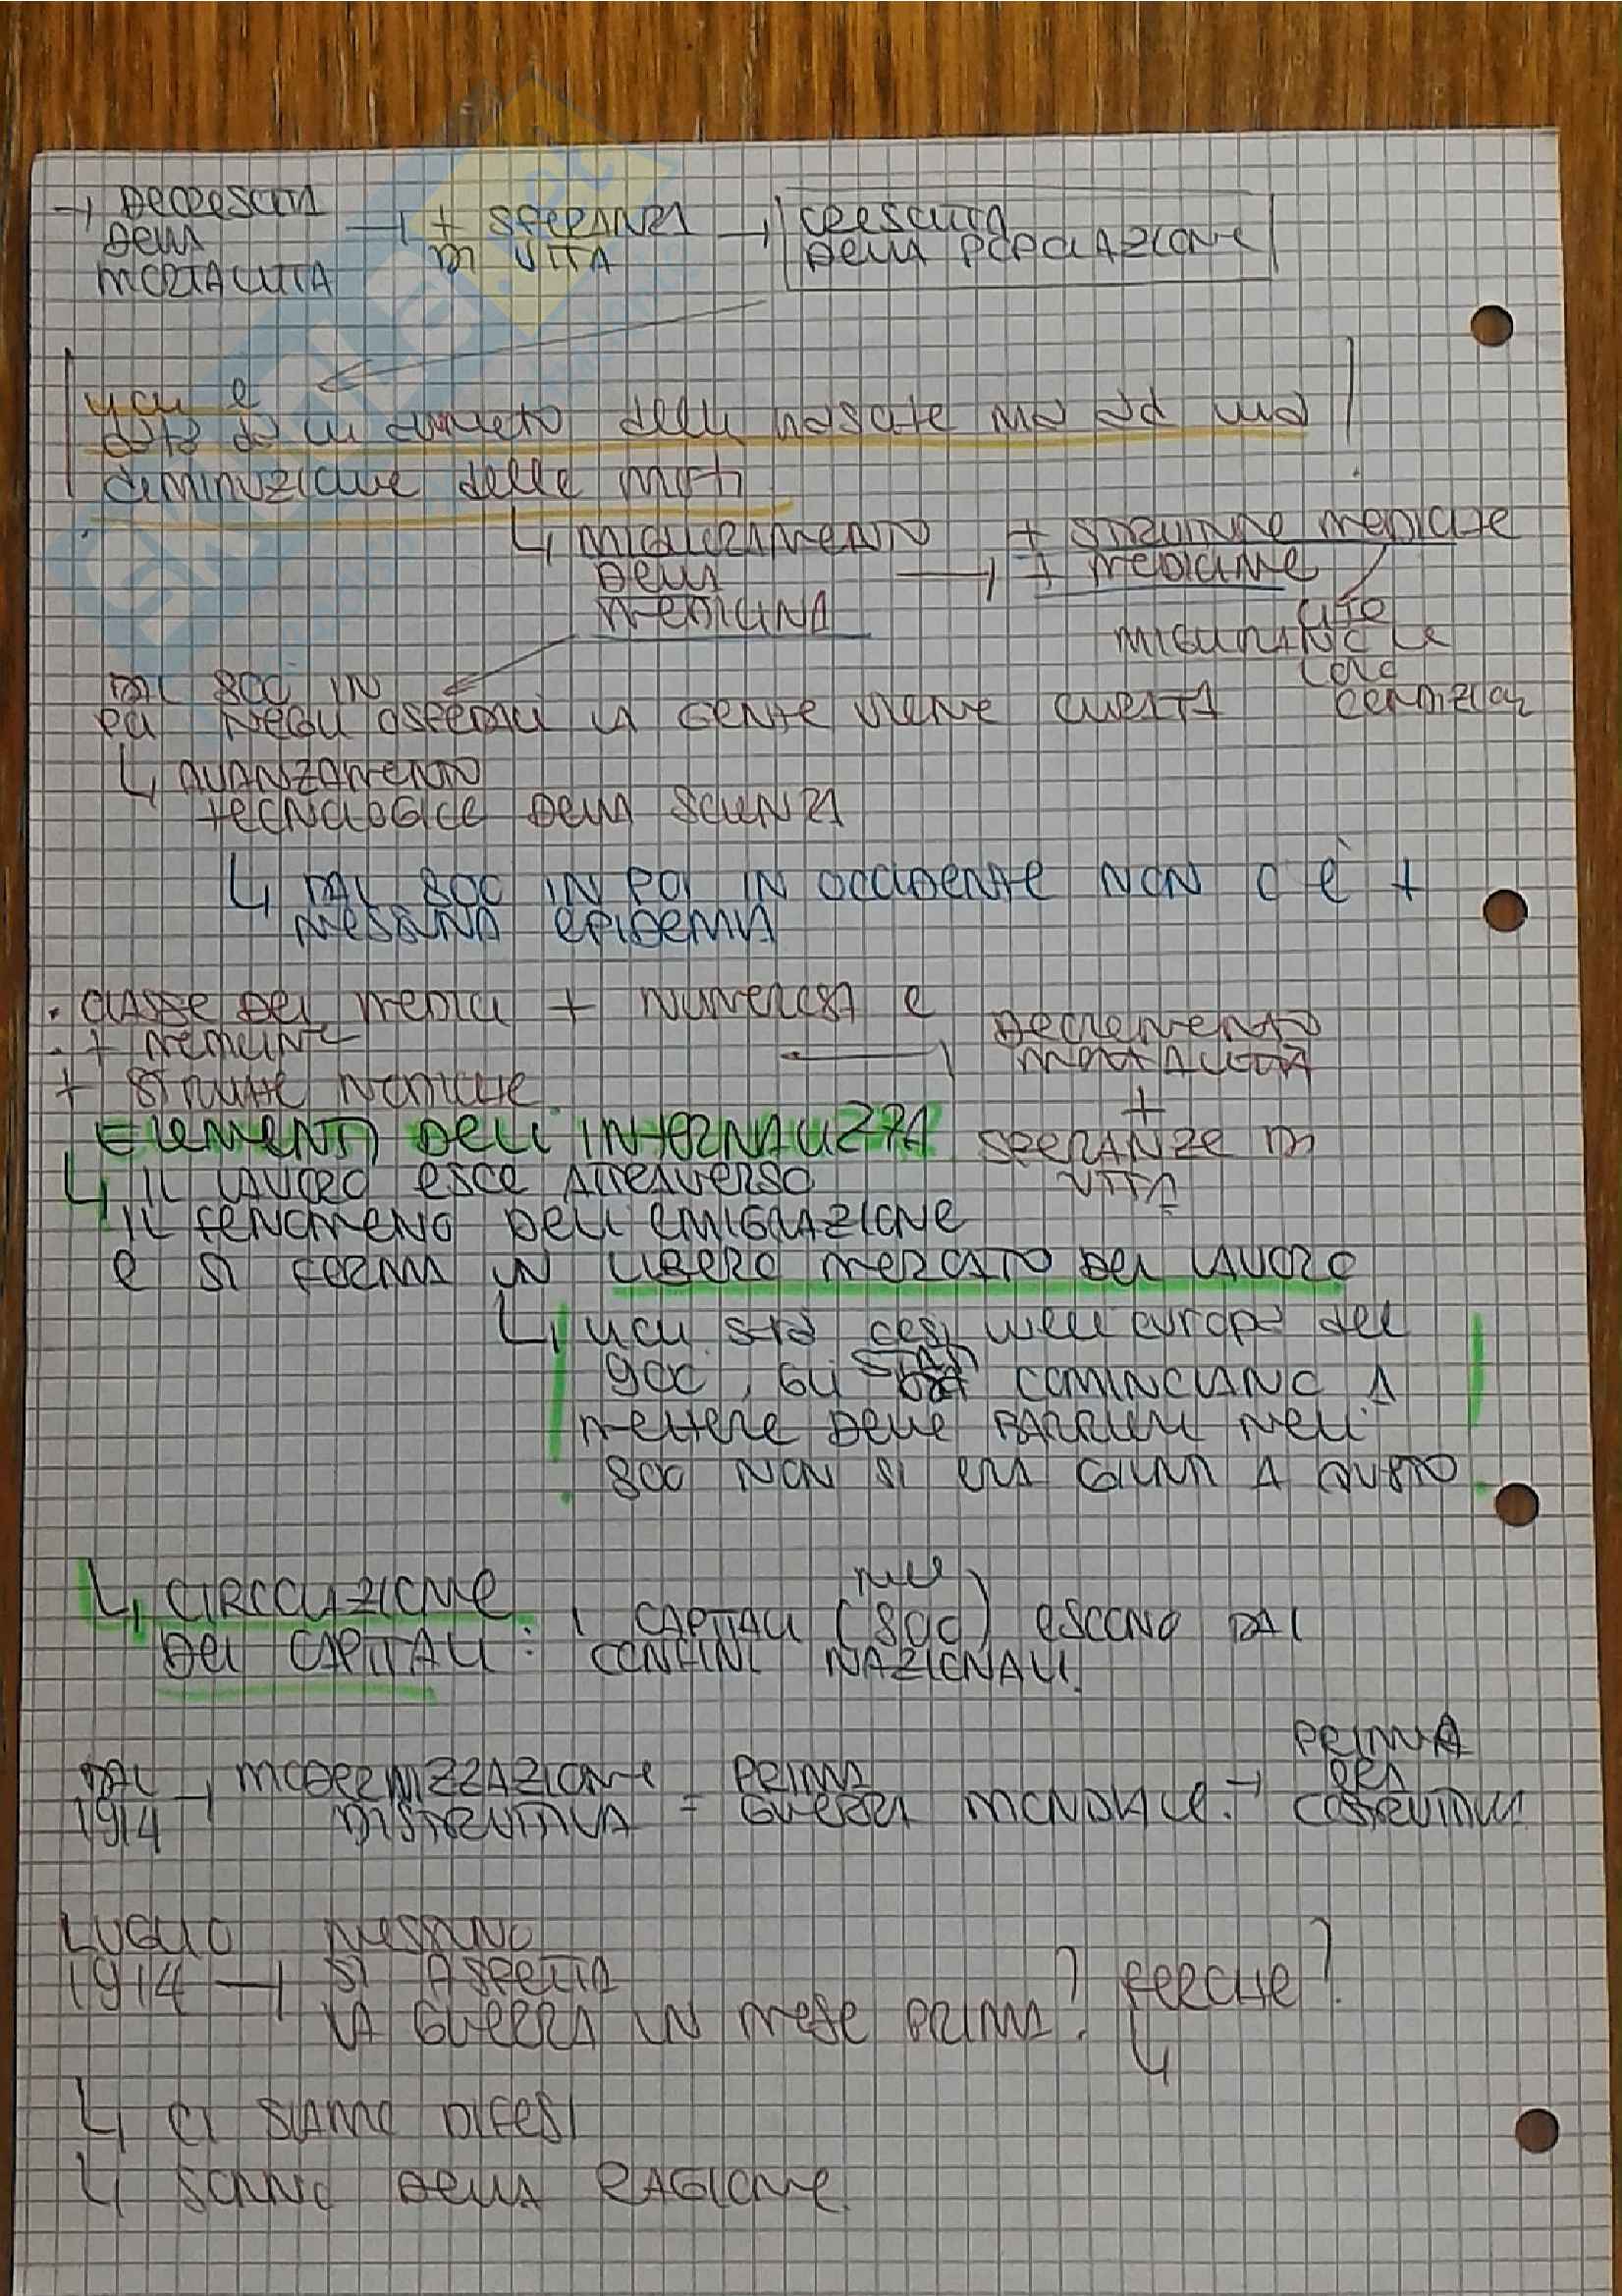 → DECRESCITA → + SPERANZA → CRESCITA
DELLA DI VITA DELLA POPOLAZIONE
MORTALITA
non è
data da un aumento delle nascite ma da una
diminuzione delle morti
↳ MIGLIORAMENTO + STRUTTURE MEDICHE
DELLA → + MEDICINE
MEDICINA CHE
MIGLIORANO LE
LORO
DAL 800 IN CONDIZIONI
POI NEGLI OSPEDALI LA GENTE VIENE CURATA
↳ AVANZAMENTO
TECNOLOGICO DELLA SCIENZA
↳ DAL 800 IN POI IN OCCIDENTE NON C È +
NESSUNA EPIDEMIA
• CLASSE DEI MEDICI + NUMEROSA e DECREMENTO
• + MEDICINE ← MORTALITÀ
+ STRUTTE MEDICHE +
ELEMENTI DELL'INTERNALIZZA SPERANZE DI
↳ IL LAVORO ESCE ATTRAVERSO VITA
IL FENOMENO DELL'EMIGRAZIONE
E SI FORMA UN LIBERO MERCATO DEL LAVORO
↳ non sarà così nell'europa del
900, GLI STATI COMINCIANO A
METTERE DELLE BARRIERE NELL'
800 NON SI ERA GIUNTI A QUESTO
↳ CIRCOLAZIONE nell'
DEI CAPITALI: I CAPITALI (800) ESCONO DAI
CONFINI NAZIONALI.
PRIMA
DAL → MODERNIZZAZIONE = PRIMA → ERA
1914 DISTRUTTIVA GUERRA MONDIALE. COSTRUTTIVA
LUGLIO NESSUNO
1914 → SI ASPETTA PERCHE?
LA GUERRA UN MESE PRIMA? ↳
↳ CI SIAMO DIFESI
↳ SONNO DELLA RAGIONE.